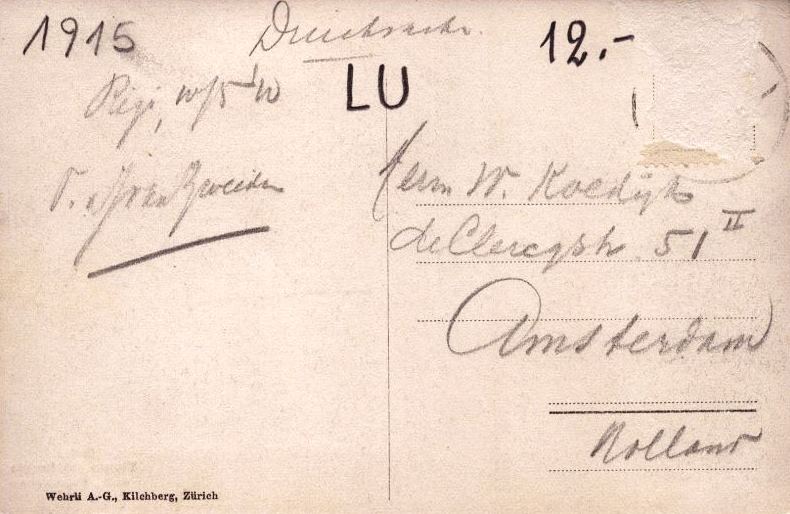 1915
Drucksache.
12.-
LU
Rigi,
Herrn W. Koedijk
de Clercqstr. 51 II
Amsterdam
Holland
Wehrli A.-G., Kilchberg, Zürich